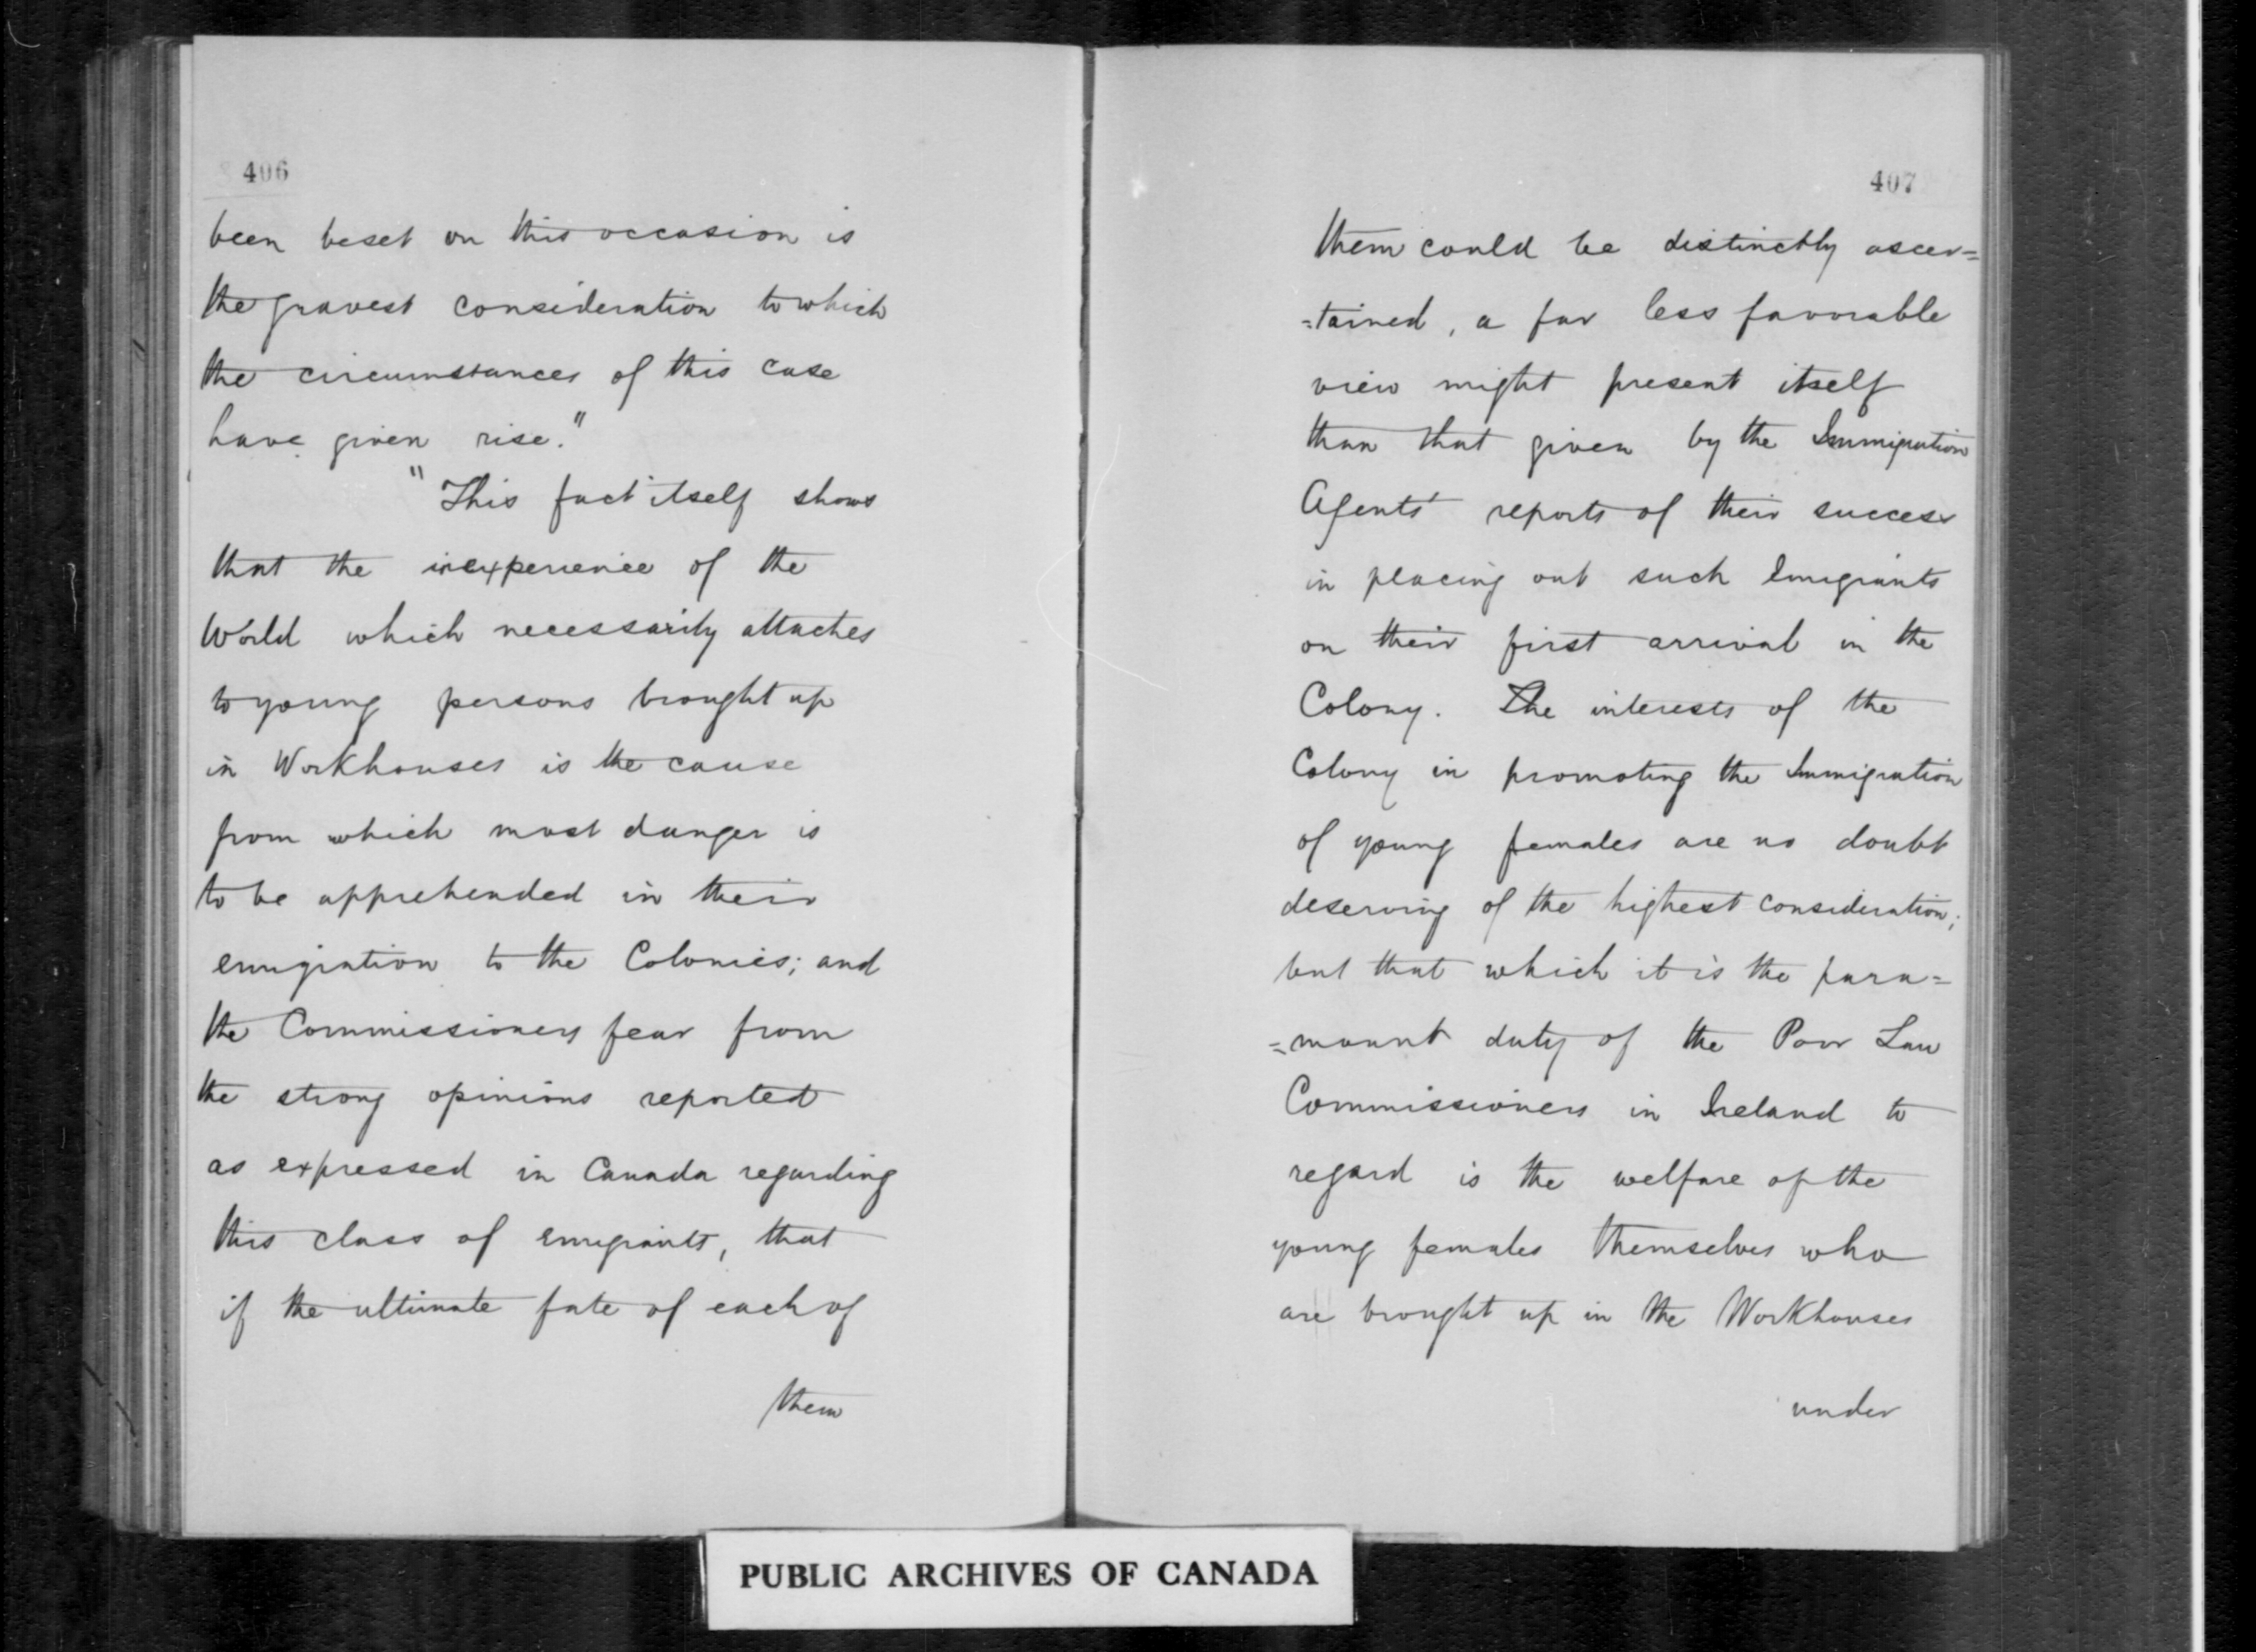 406
been beset on this occasion is
the gravest consideration to which
the circumstances of this case
have given rise."
"This fact itself shows
that the inexperience of the
World which necessarily attaches
to young persons brought up
in Workhouses is the cause
from which most danger is
to be apprehended in their
emigration to the Colonies; and
the Commissioners fear from
the strong opinions reported
as expressed in Canada regarding
this class of emigrants, that
if the ultimate fate of each of
them
407
them could be distinctly ascer=
=tained, a far less favorable
view might present itself
than that given by the Immigration
Agents' reports of their success
in placing out such Emigrants
on their first arrival in the
Colony. The interests of the
Colony in promoting the Immigration
of young females are no doubt
deserving of the highest consideration;
but that which it is the para=
=mount duty of the Poor Law
Commissioners in Ireland to
regard is the welfare of the
young females themselves who
are brought up in the Workhouses
under
PUBLIC ARCHIVES OF CANADA